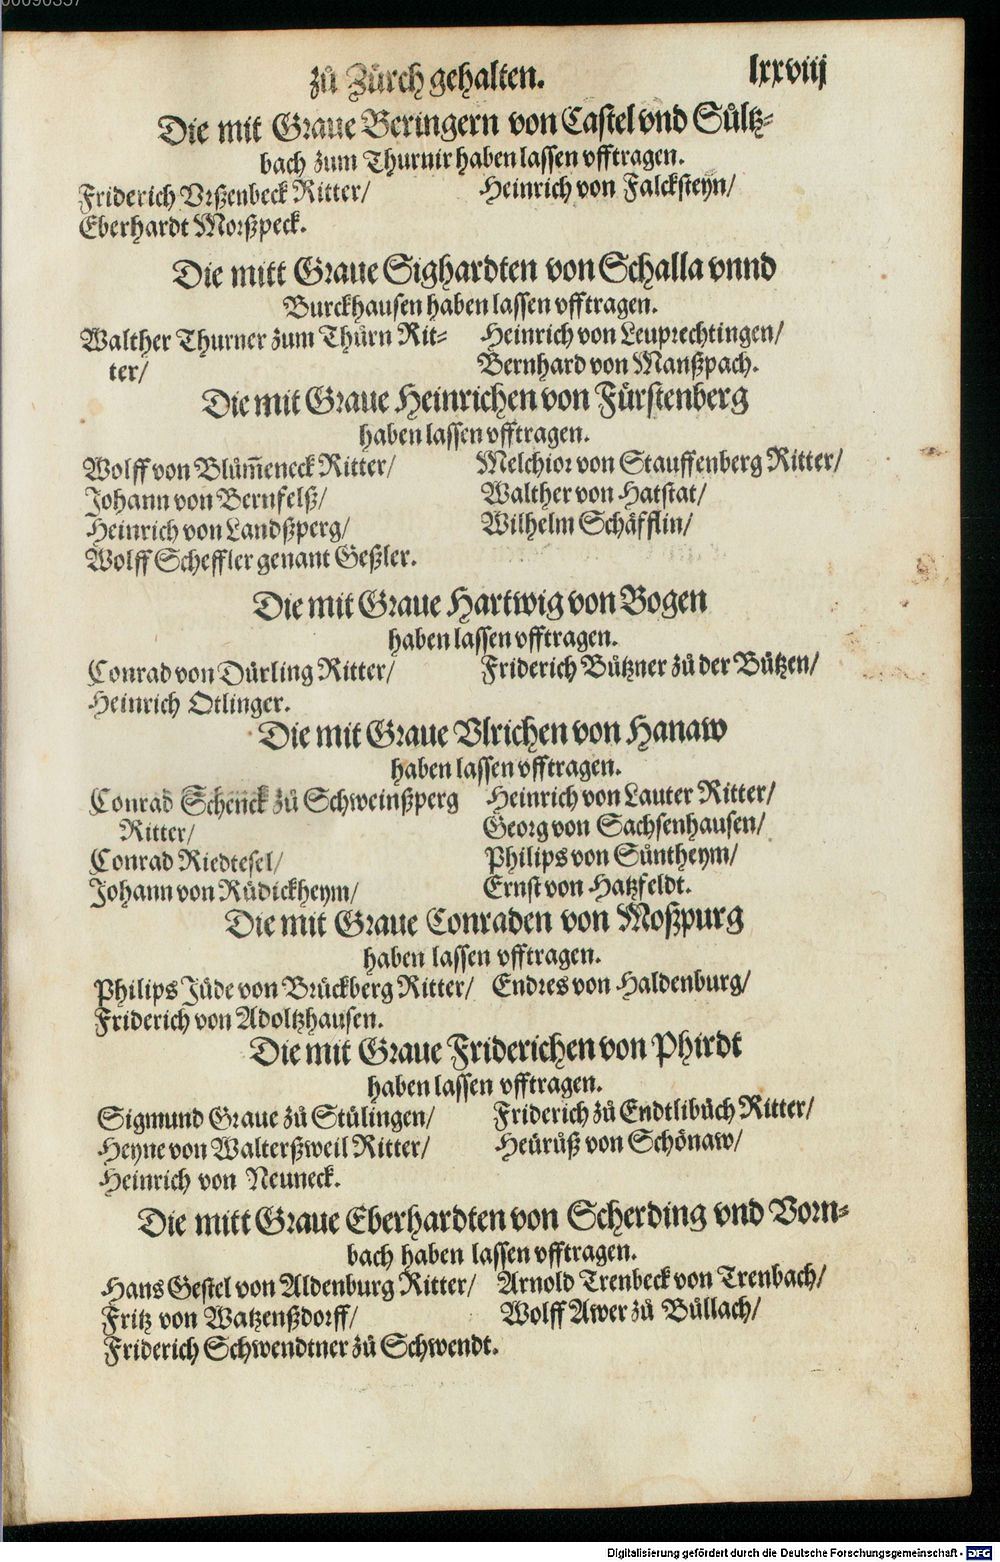 zů Zürch gehalten. lxxviij
Die mit Graue Beringern von Castel vnd Sůltz-
bach zum Thurnir haben lassen vfftragen.
Friderich Vrßenbeck Ritter/
Eberhardt Morßpeck.
Heinrich von Falcksteyn/
Die mitt Graue Sighardten von Schalla vnnd
Burckhausen haben lassen vfftragen.
Walther Thurner zum Thůrn Rit-
ter/
Heinrich von Leuprechtingen/
Bernhard von Manßpach.
Die mit Graue Heinrichen von Fürstenberg
haben lassen vfftragen.
Wolff von Blům̃eneck Ritter/
Johann von Bernfelß/
Heinrich von Landßperg/
Wolff Scheffler genant Geßler.
Melchior von Stauffenberg Ritter/
Walther von Hatstat/
Wilhelm Schäfflin/
Die mit Graue Hartwig von Bogen
haben lassen vfftragen.
Conrad von Dürling Ritter/
Heinrich Otlinger.
Friderich Bützner zů der Bützen/
Die mit Graue Vlrichen von Hanaw
haben lassen vfftragen.
Conrad Schenck zů Schweinßperg
Ritter/
Conrad Riedtesel/
Johann von Rüdickheym/
Heinrich von Lauter Ritter/
Georg von Sachsenhausen/
Philips von Süntheym/
Ernst von Hatzfeldt.
Die mit Graue Conraden von Moßpurg
haben lassen vfftragen.
Philips Jüde von Brückberg Ritter/
Friderich von Adoltzhausen.
Endres von Haldenburg/
Die mit Graue Friderichen von Phirdt
haben lassen vfftragen.
Sigmund Graue zů Stülingen/
Heyne von Walterßweil Ritter/
Heinrich von Neuneck.
Friderich zů Endtlibůch Ritter/
Heürüß von Schönaw/
Die mitt Graue Eberhardten von Scherding vnd Vorn-
bach haben lassen vfftragen.
Hans Gestel von Aldenburg Ritter/
Fritz von Watzenßdorff/
Friderich Schwendtner zů Schwendt.
Arnold Trenbeck von Trenbach/
Wolff Awer zů Büllach/
Digitalisierung gefördert durch die Deutsche Forschungsgemeinschaft - DFG